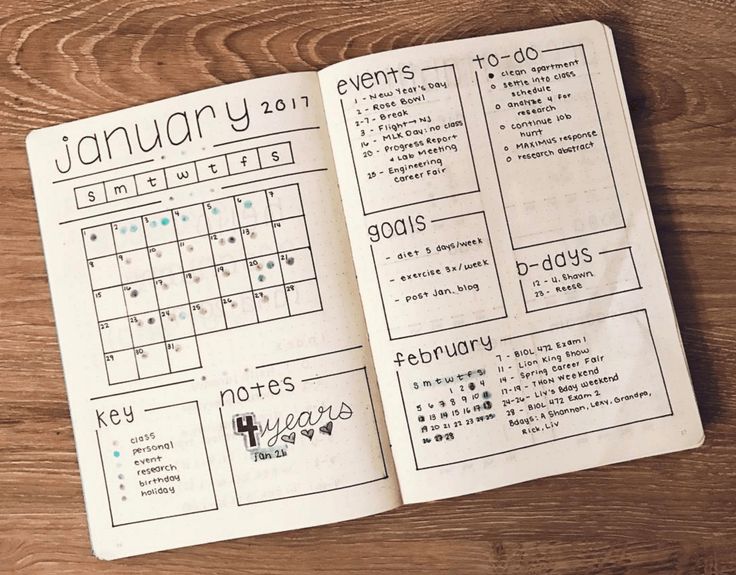 january 2017
s m t w t f s
1 2 3 4 5 6 7
8 9 10 11 12 13 14
15 16 17 18 19 20 21
22 23 24 25 26 27 28
29 30 31
key
class
personal
event
research
birthday
holiday
notes
4 years
Jan 21
events
1 - New Year's Day
2 - Rose Bowl
2-7 - Break
3 - Flight → NJ
16 - MLK Day: no class
20 - Progress Report
& Lab Meeting
25 - Engineering
Career Fair
goals
- diet 5 days/week
- exercise 3x/week
- post Jan. blog
to-do
clean apartment
settle into class
schedule
analyze 4 for
research
continue job
hunt
MAXIMUS response
research abstract
b-days
12 - U. Shawn
23 - Reese
february
s m t w t f s
1 2 3 4
5 6 7 8 9 10 11
12 13 14 15 16 17 18
19 20 21 22 23 24 25
26 27 28
7 - BIOL 472 Exam 1
11 - Lion King Show
14 - Spring Career Fair
17-19 - THON Weekend
24-26 - Liv's Bday Weekend
28 - BIOL 472 Exam 2
Bdays: A Shannon, Lexy, Grandpa,
Rick, Liv